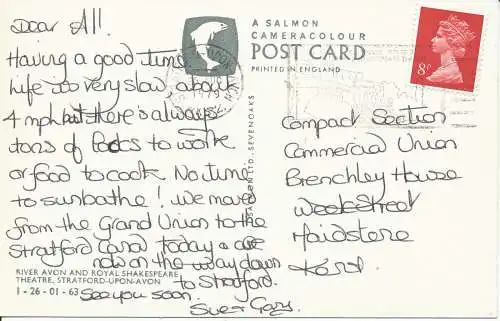 Dear All.
Having a good time.
Life is very slow, about
4 mph but there is always
tons of locks to work
or food to cook. No time
to sunbathe! We moved
from the Grand Union to the
Stratford Canal today & are
now on the way down
to Stratford.
See you soon.
Sue & Gary.
RIVER AVON AND ROYAL SHAKESPEARE
THEATRE, STRATFORD-UPON-AVON
1 - 26 - 01 - 63
A SALMON
CAMERACOLOUR
POST CARD
PRINTED IN ENGLAND
LTD., SEVENOAKS
8p
Compact Section
Commercial Union
Brenchley House
Week Street
Maidstone
Kent